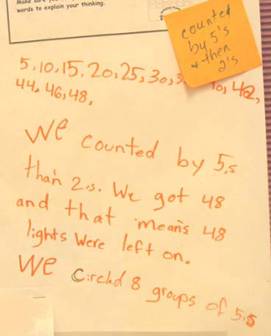 words to explain your thinking.
counted
by 5's
& then
2's
5,10,15,20,25,30,3 40,42,
44,46,48,
We counted by 5,s
than 2.s. We got 48
and that means 48
lights were left on.
We Circld 8 groups of 5,s